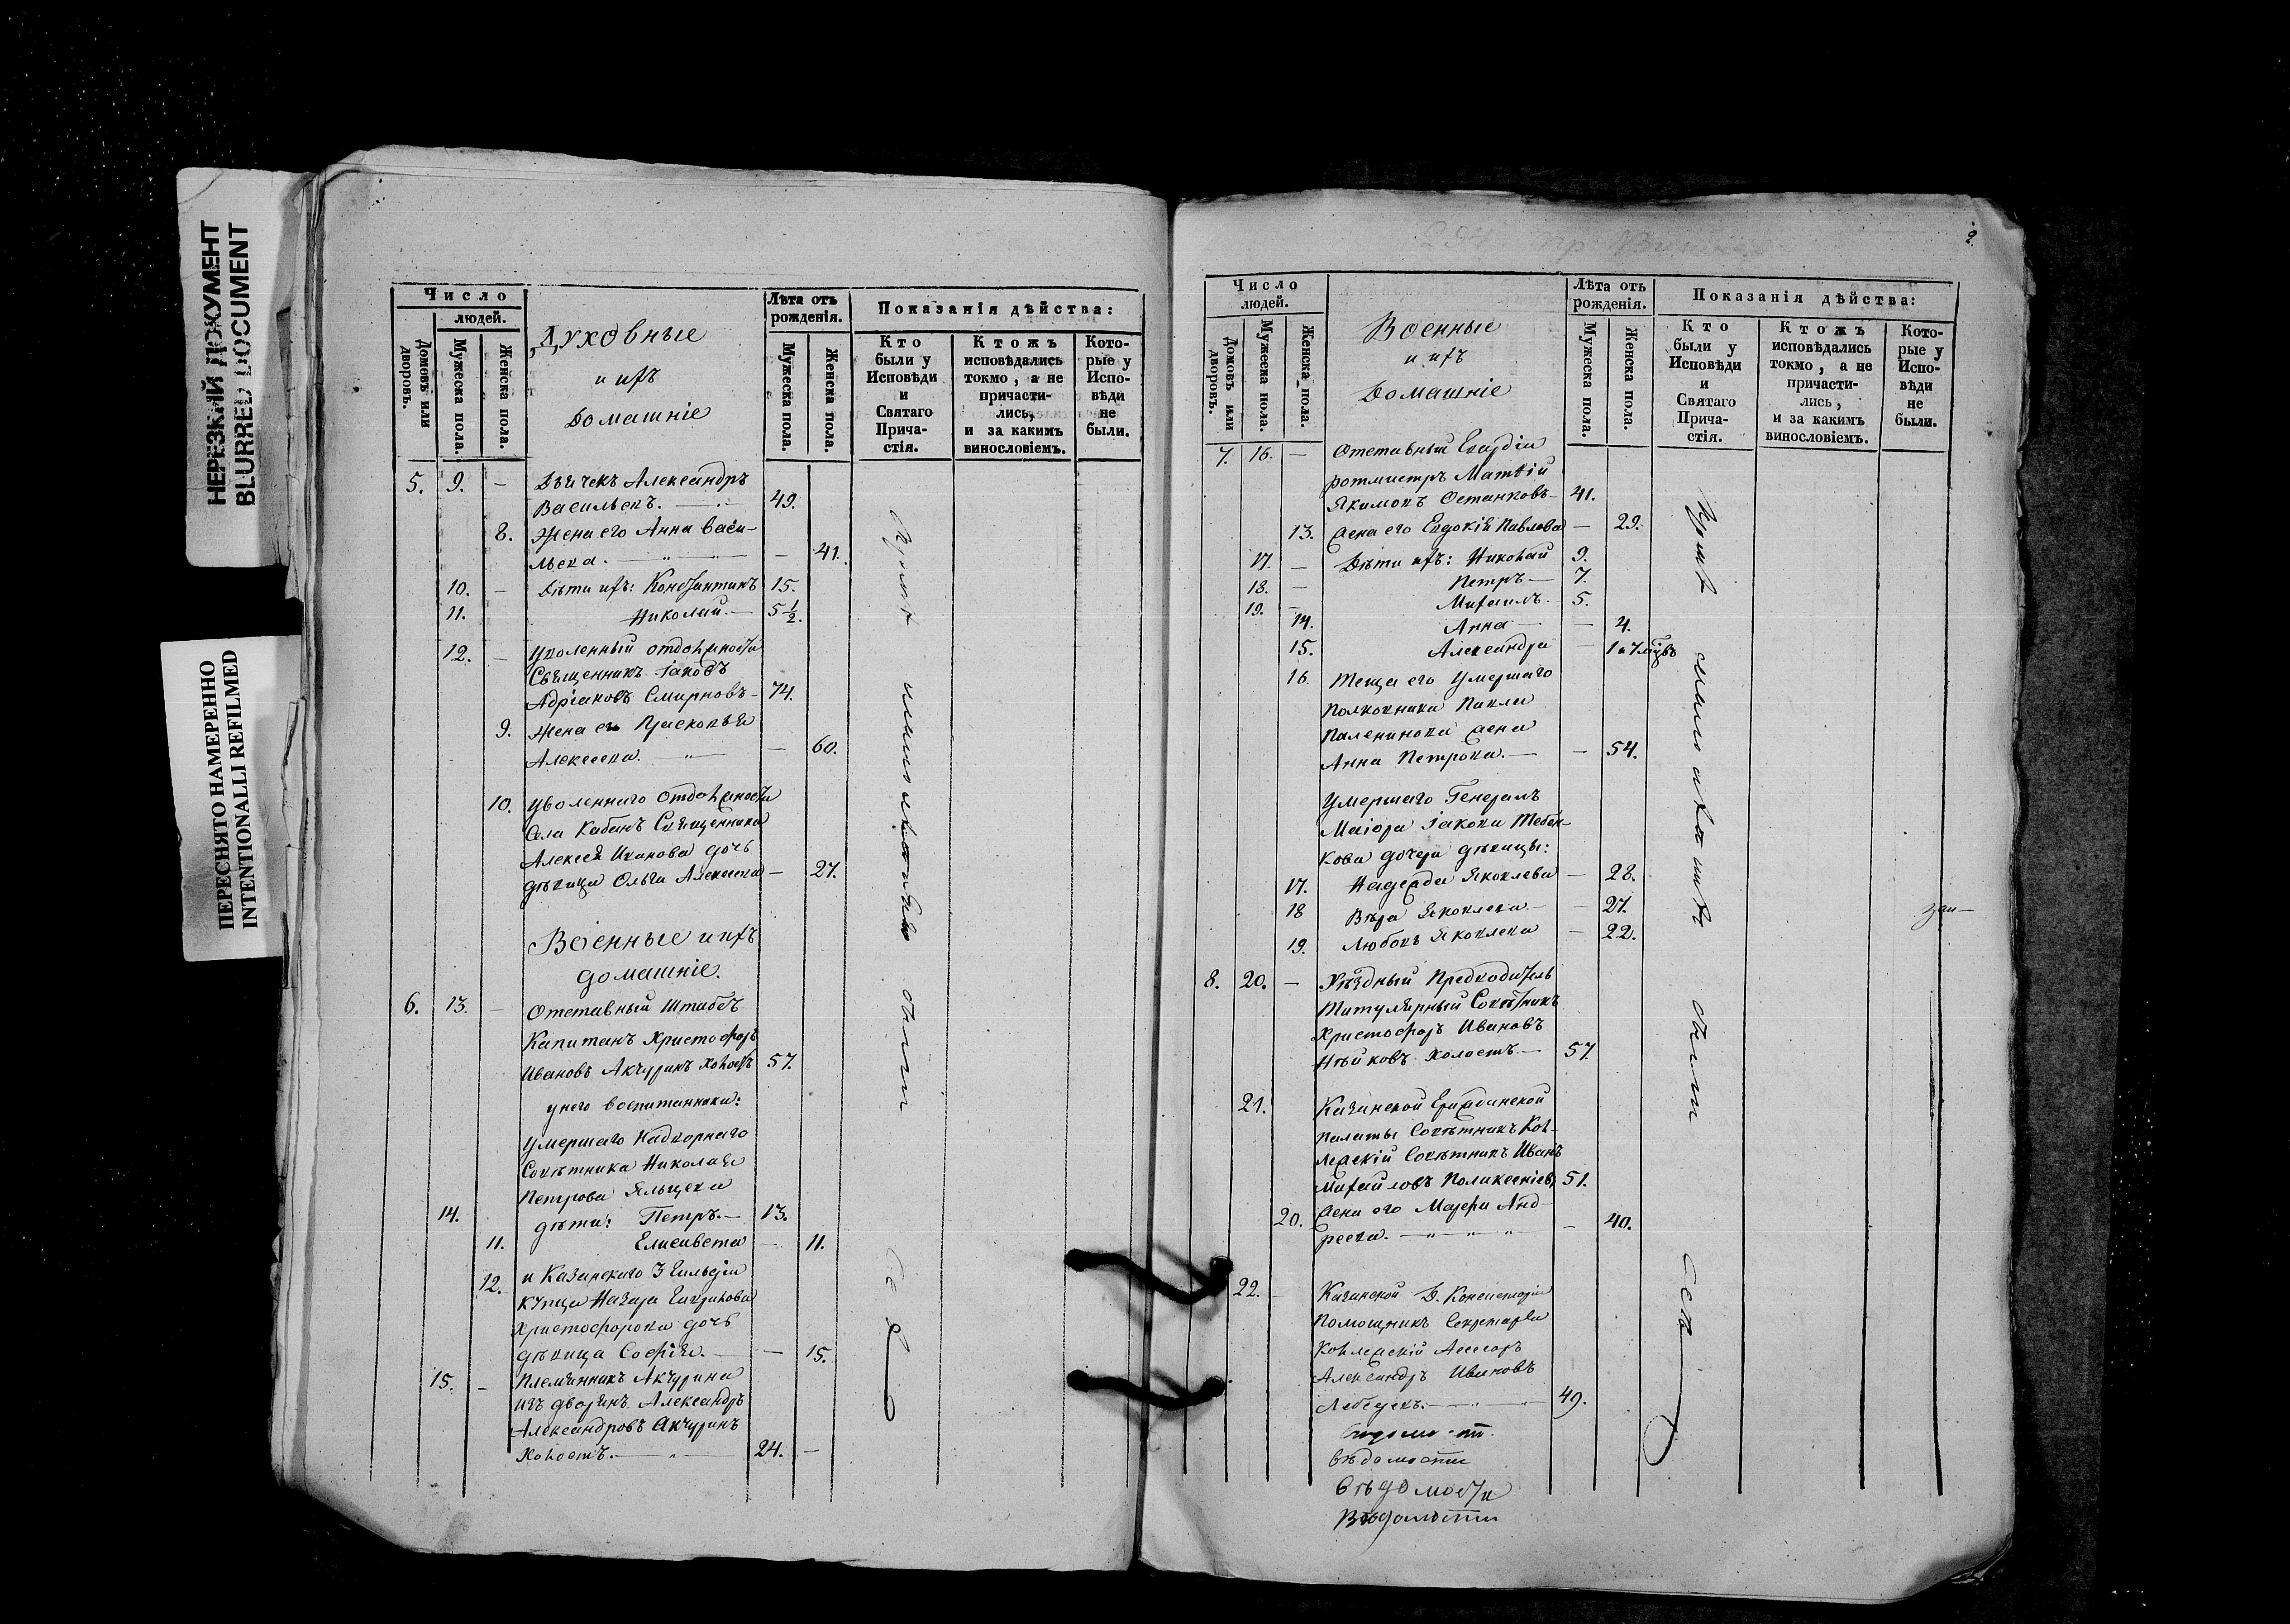 НЕРЕЗКИЙ ДОКУМЕНТ
BLURRED DOCUMENT
ПЕРЕСНЯТО НАМЕРЕННО
INTENTIONALLI REFILMED
Число
людей.
Домовъ или дворовъ.
Мужеска пола.
Женска пола.
Духовные
и ихъ
Домашніе
Лѣта отъ
рожденія.
Мужеска пола.
Женска пола.
Показанія дѣйства:
Кто
были у
Исповѣди
и
Святаго
Прича-
стія.
Ктожъ
исповѣдались
токмо, а не
причасти-
лись,
и за какимъ
винословіемъ.
Кото-
рые у
Испо-
вѣди
не
были.
5. 9. — Дьячекъ Александръ
Васильевъ. — 49.
8. Жена его Анна Васи-
льева. — 41.
10. — Дѣти ихъ: Константинъ 15.
11. Николай. — 5 1/2.
12. — Уволенный отдолжности
Священникъ Іаковъ
Адріановъ Смирновъ — 74.
9. Жена его Прасковья
Алексеева. — 60.
10. Уволеннаго отдолжности
Села Кабанъ Священника
Алексея Иванова дочь
дѣвица Ольга Алексеева — 27.
Военные и ихъ
домашніе.
6. 13. — Отставный Штабсъ
Капитанъ Христофоръ
Ивановъ Акчуринъ холостъ 57.
у него воспитанники:
Умершаго Надворнаго
Совѣтника Николая
Петрова Яльцева
14. дѣти: Петръ. — 13.
11. Елисавета — 11.
12. и Казанскаго 3 гильдіи
купца Назара Гаврилова
Христофорова дочь
дѣвица Софія. — 15.
15. — Племянникъ Акчурина
изъ дворянъ Александръ
Александровъ Акчуринъ
Холостъ. — 24. —
2.
Число
людей.
Домовъ или дворовъ.
Мужеска пола.
Женска пола.
Военные
и ихъ
Домашніе
Лѣта отъ
рожденія.
Мужеска пола.
Женска пола.
Показанія дѣйства:
Кто
были у
Исповѣди
и
Святаго
Прича-
стія.
Ктожъ
исповѣдались
токмо, а не
причасти-
лись,
и за какимъ
винословіемъ.
Кото-
рые у
Испо-
вѣди
не
были.
7. 16. — Отставный Гвардіи
ротмистръ Матвій
Якимовъ Останковъ — 41.
13. жена его Евдокія Павлова — 29.
17. — Дѣти ихъ: Николай 9.
18. — Петръ — 7.
19. — Михаилъ. 5.
14. Анна — 4.
15. Александра — 1 и 7 мцвъ
16. Теща его Умершаго
Полковника Павла
жена
Анна Петрова. — 54.
Умершаго Генералъ
Маіора Іакова Тебен-
кова дочери дѣвицы:
17. Надежда Яковлева — 28.
18 Вѣра Яковлева — 27.
19. Любовь Яковлева — 22.
8. 20. — Уѣздный Предводитель
Титулярный Совѣтникъ
Христофоръ Ивановъ
Нѣйковъ холостъ. — 57
21. Казанской Гражданской
палаты Совѣтникъ Кол-
лежскій Совѣтникъ Иванъ
Михайловъ 51.
20. жена его Марфа Анд-
реева. — 40.
22. Казанской Д. Консисторіи
Помощникъ Секретаря
Коллежскій Асесоръ
Александръ Ивановъ
Лебедевъ. — 49.
вѣдомости
вѣдомости
Вѣдомости